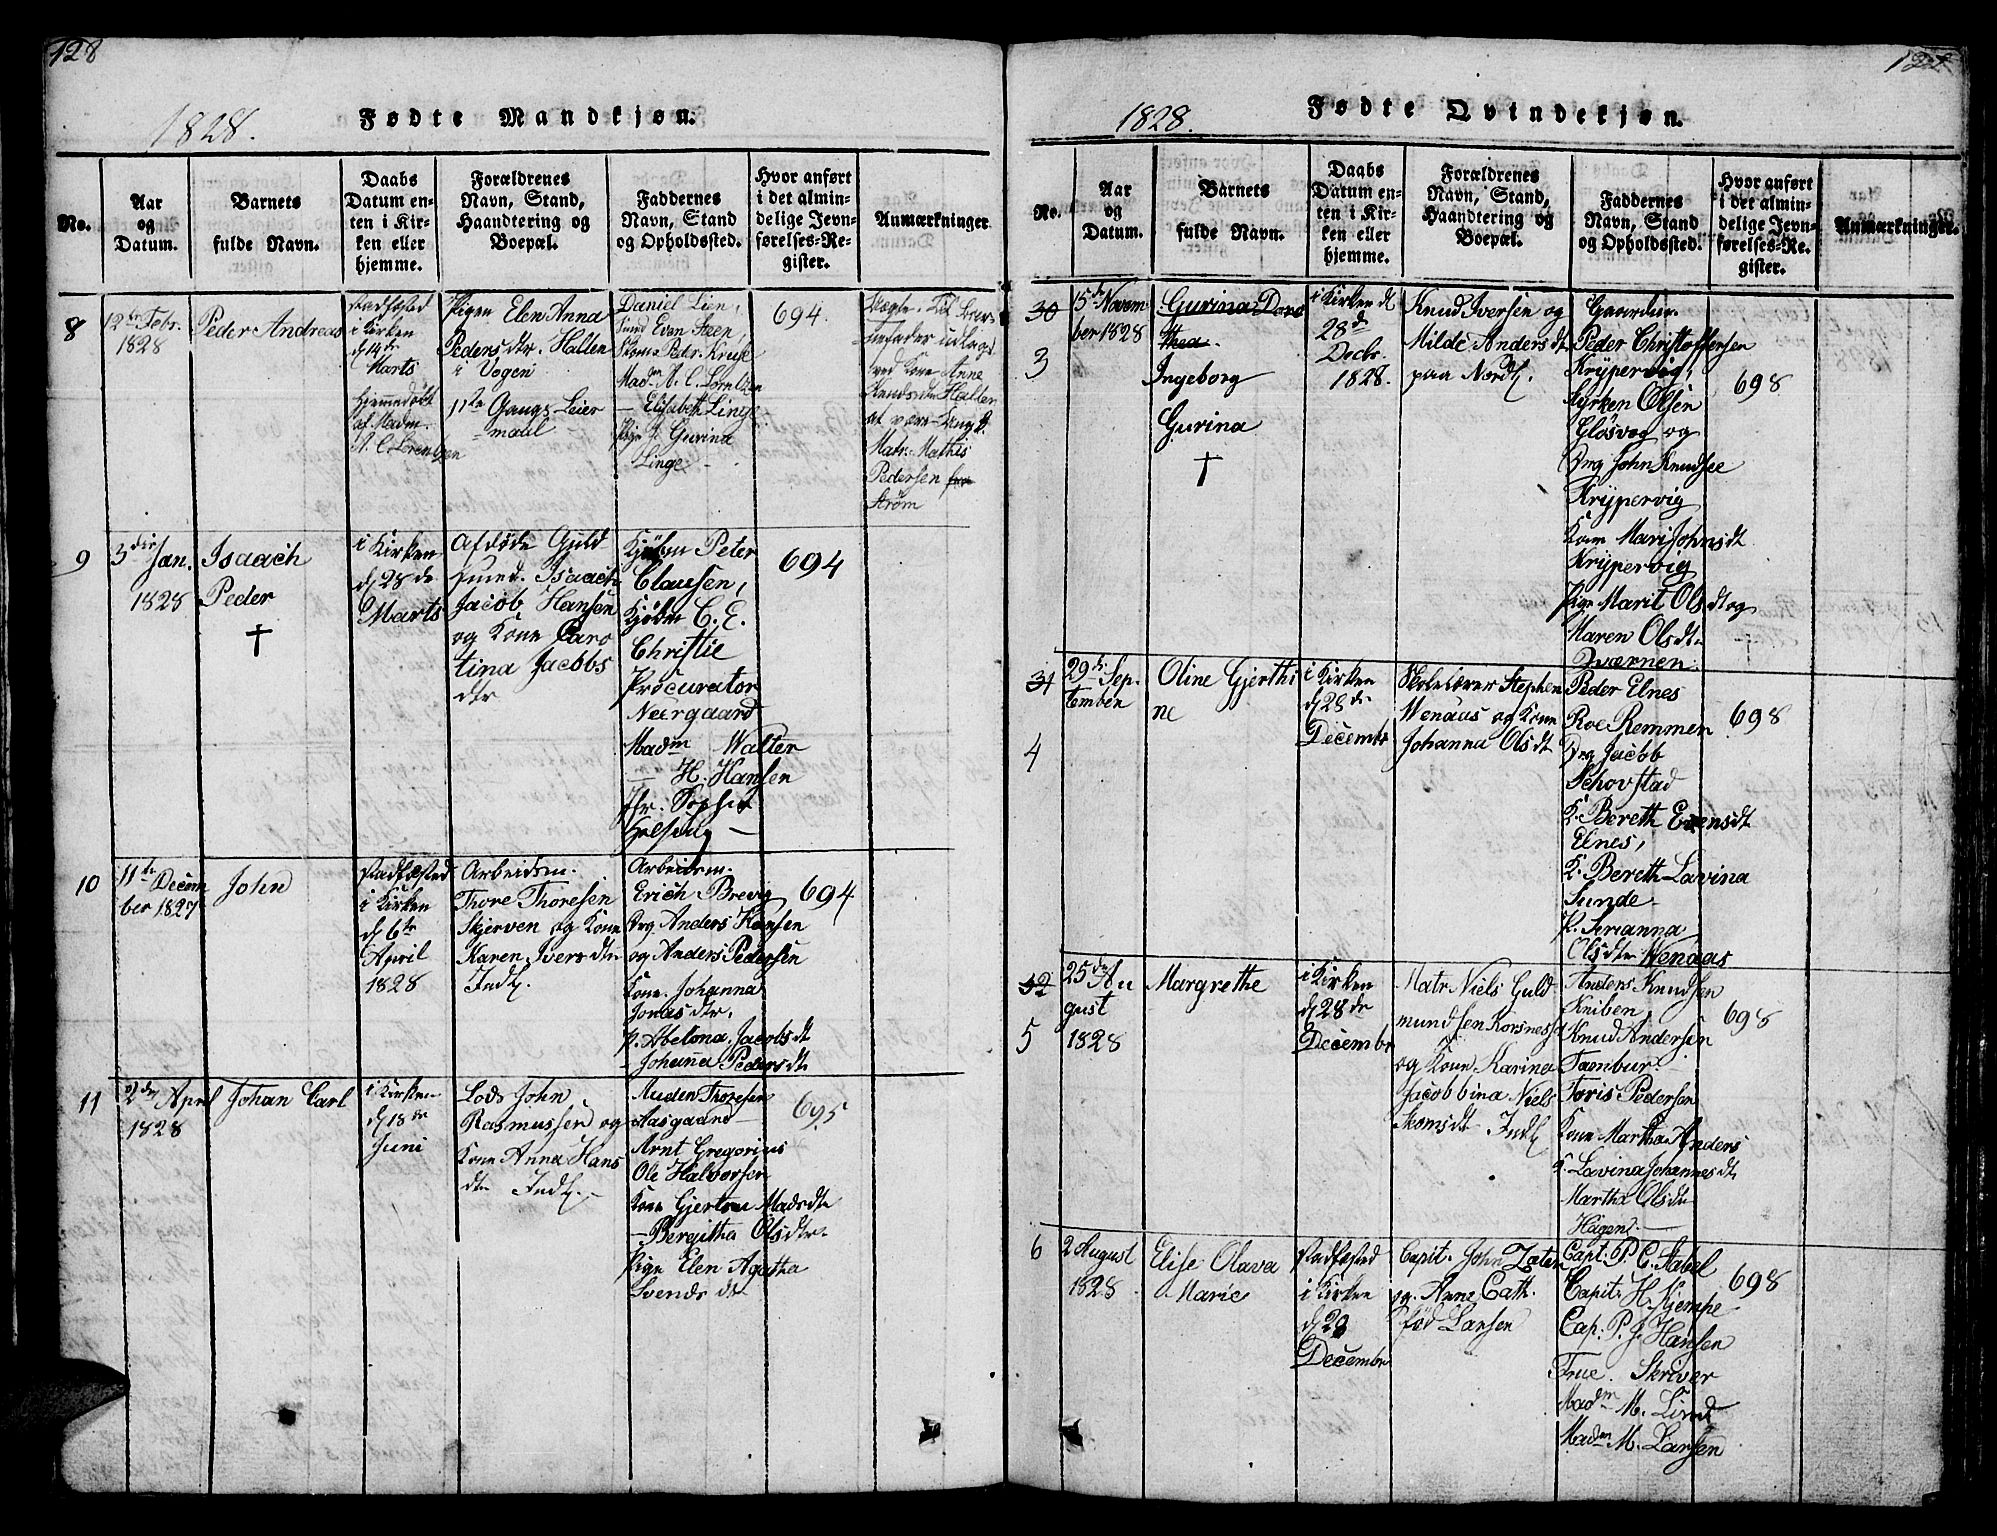 128
1828.
Fødte Mandkjøn.
No.
Aar
og
Datum.
Barnets
fulde Navn.
Daabs
Datum en-
ten i Kir-
ken eller
hjemme.
Forældrenes
Navn, Stand,
Haandtering og
Boepæl.
Faddernes
Navn, Stand
og Opholdssted.
Hvor anført
i det almin-
delige Jevn-
førelses-Re-
gister.
Anmærkninger
8
12te Febr.
1828
Peder Andreas
Stadfæsted
i Kirken
d 14de
Marts
Hjemmedøbt
af Madm.
A. C. Lorentzen
Pigen Elen Anna
Pedersdtr. Hallen
i Vogen
11te Gangs Leier
maal
Daniel Lien,
Evan Steen,
Pedr. Kruse
Madm A. C. Lorentzen
— Elisabeth Linge
Pige J. Gurina
Linge —
694.
ved Kone Anne
Knudsdtr Hallen
at være Ungk.
Matr. Mathis
Pedersen
Strøm
9
3die Jan.
1828
Isaach
Peder
†
i Kirken
d 28de
Marts
Afdøde Guld
smed. Isaach
Jacob Hansen
og Kone Caro
tina Jacobs
dtr
Kjøbm Peter
Clausen,
Kjøbm C. E.
Christie
Procurator
Neergaard
Madm Walter
— H. Hansen
Jfr. Sophie
Helseng —
694
10
11te Decem
ber 1827
John
Stadfæsted
i Kirken
d 6te
April
1828
Arbeidsm.
Thore Thoresen
Skjerven og Kone
Karen Iversdtr
Indl.
Arbeidsm.
Erich Brevig
Drg. Anders Hansen
og Anders Pedersen
Kone. Johanna
Jonasdtr,
P. Abelona Jacobsdt
— Johanna Pedersdt
694
11
2de April
1828
Johan Carl
i Kirken
d 18de
Juni
Lods John
Rasmussen og
Kone Anna Hans
dtr Indl. —
Auden Thoresen
Aasgaard
Arnt Gregorius
Ole Halvorsen
Kone Gjertru Madsdtr
— Bergitha Olsdtr
Pige Elen Agatha
Svendsdt
695
1828.
Fødte Qvindekjøn.
No.
Aar
og
Datum.
Barnets
fulde Navn.
Daabs
Datum en-
ten i Kir-
ken eller
hjemme.
Forældrenes
Navn, Stand,
Haandtering og
Boepæl.
Faddernes
Navn, Stand
og Opholdssted.
Hvor anført
i det almin-
delige Jevn-
førelses-Re-
gister.
Anmærkninger.
30
3
15de Novem
ber 1828
Gurina Doro
thea.
Ingeborg
Gurina
†
i Kirken d
28de
Decbr.
1828.
Knud Iversen og
Milde Andersdt
paa Nordl.
Gaardm.
Peder Christoffersen
Krypervig,
Kyrken Olsen
Gløsvog og
Drg John Knudsen
Krypervig
Kone Mari Johnsdt
Krypervig
Pige Marit Olsdt og
Maren Olsdtr
Qværnen
698
31
4
29de Sep-
tember
Oline Gjerthi
ne
i Kirken
d 28de
Decembr
Skolelærer Stephen
Wenaus og Kone
Johanna Olsdt
Peder Elnes
Roe Remmen
Drg Jacob
Schovstad
K. Bereth Evensdt
Elnes,
K. Bereth Lavina
Sunde.
P. Serianna
Olsdtr Wenaas
698
32
5
25de Au
gust
1828
Margrethe
i Kirken
d 28de
Decembr
Matr Niels Guld
mundsen Korsnes
og Kone Karina
Jacobbina Niels
Indl
Anders Knudsen
Kniben,
Knud Andersen
Tambur.
Toris Pedersen
Kone Martha Anders
K. Lavina Johannesdt
Martha Olsdtr
Hagen. —
698
6
2 August
1828
Elise Olava
Marie
Stadfæsted
i Kirken
d 28
Decembr
Capit. John Zaten
og. Anne Cath.
fød Larsen
Capt: P. C. Stabel
Capit. H. Kjempe
Cap: P. J. Hansen
Frue. Skriver
Madm M. Lind
Madm M. Larsen
698